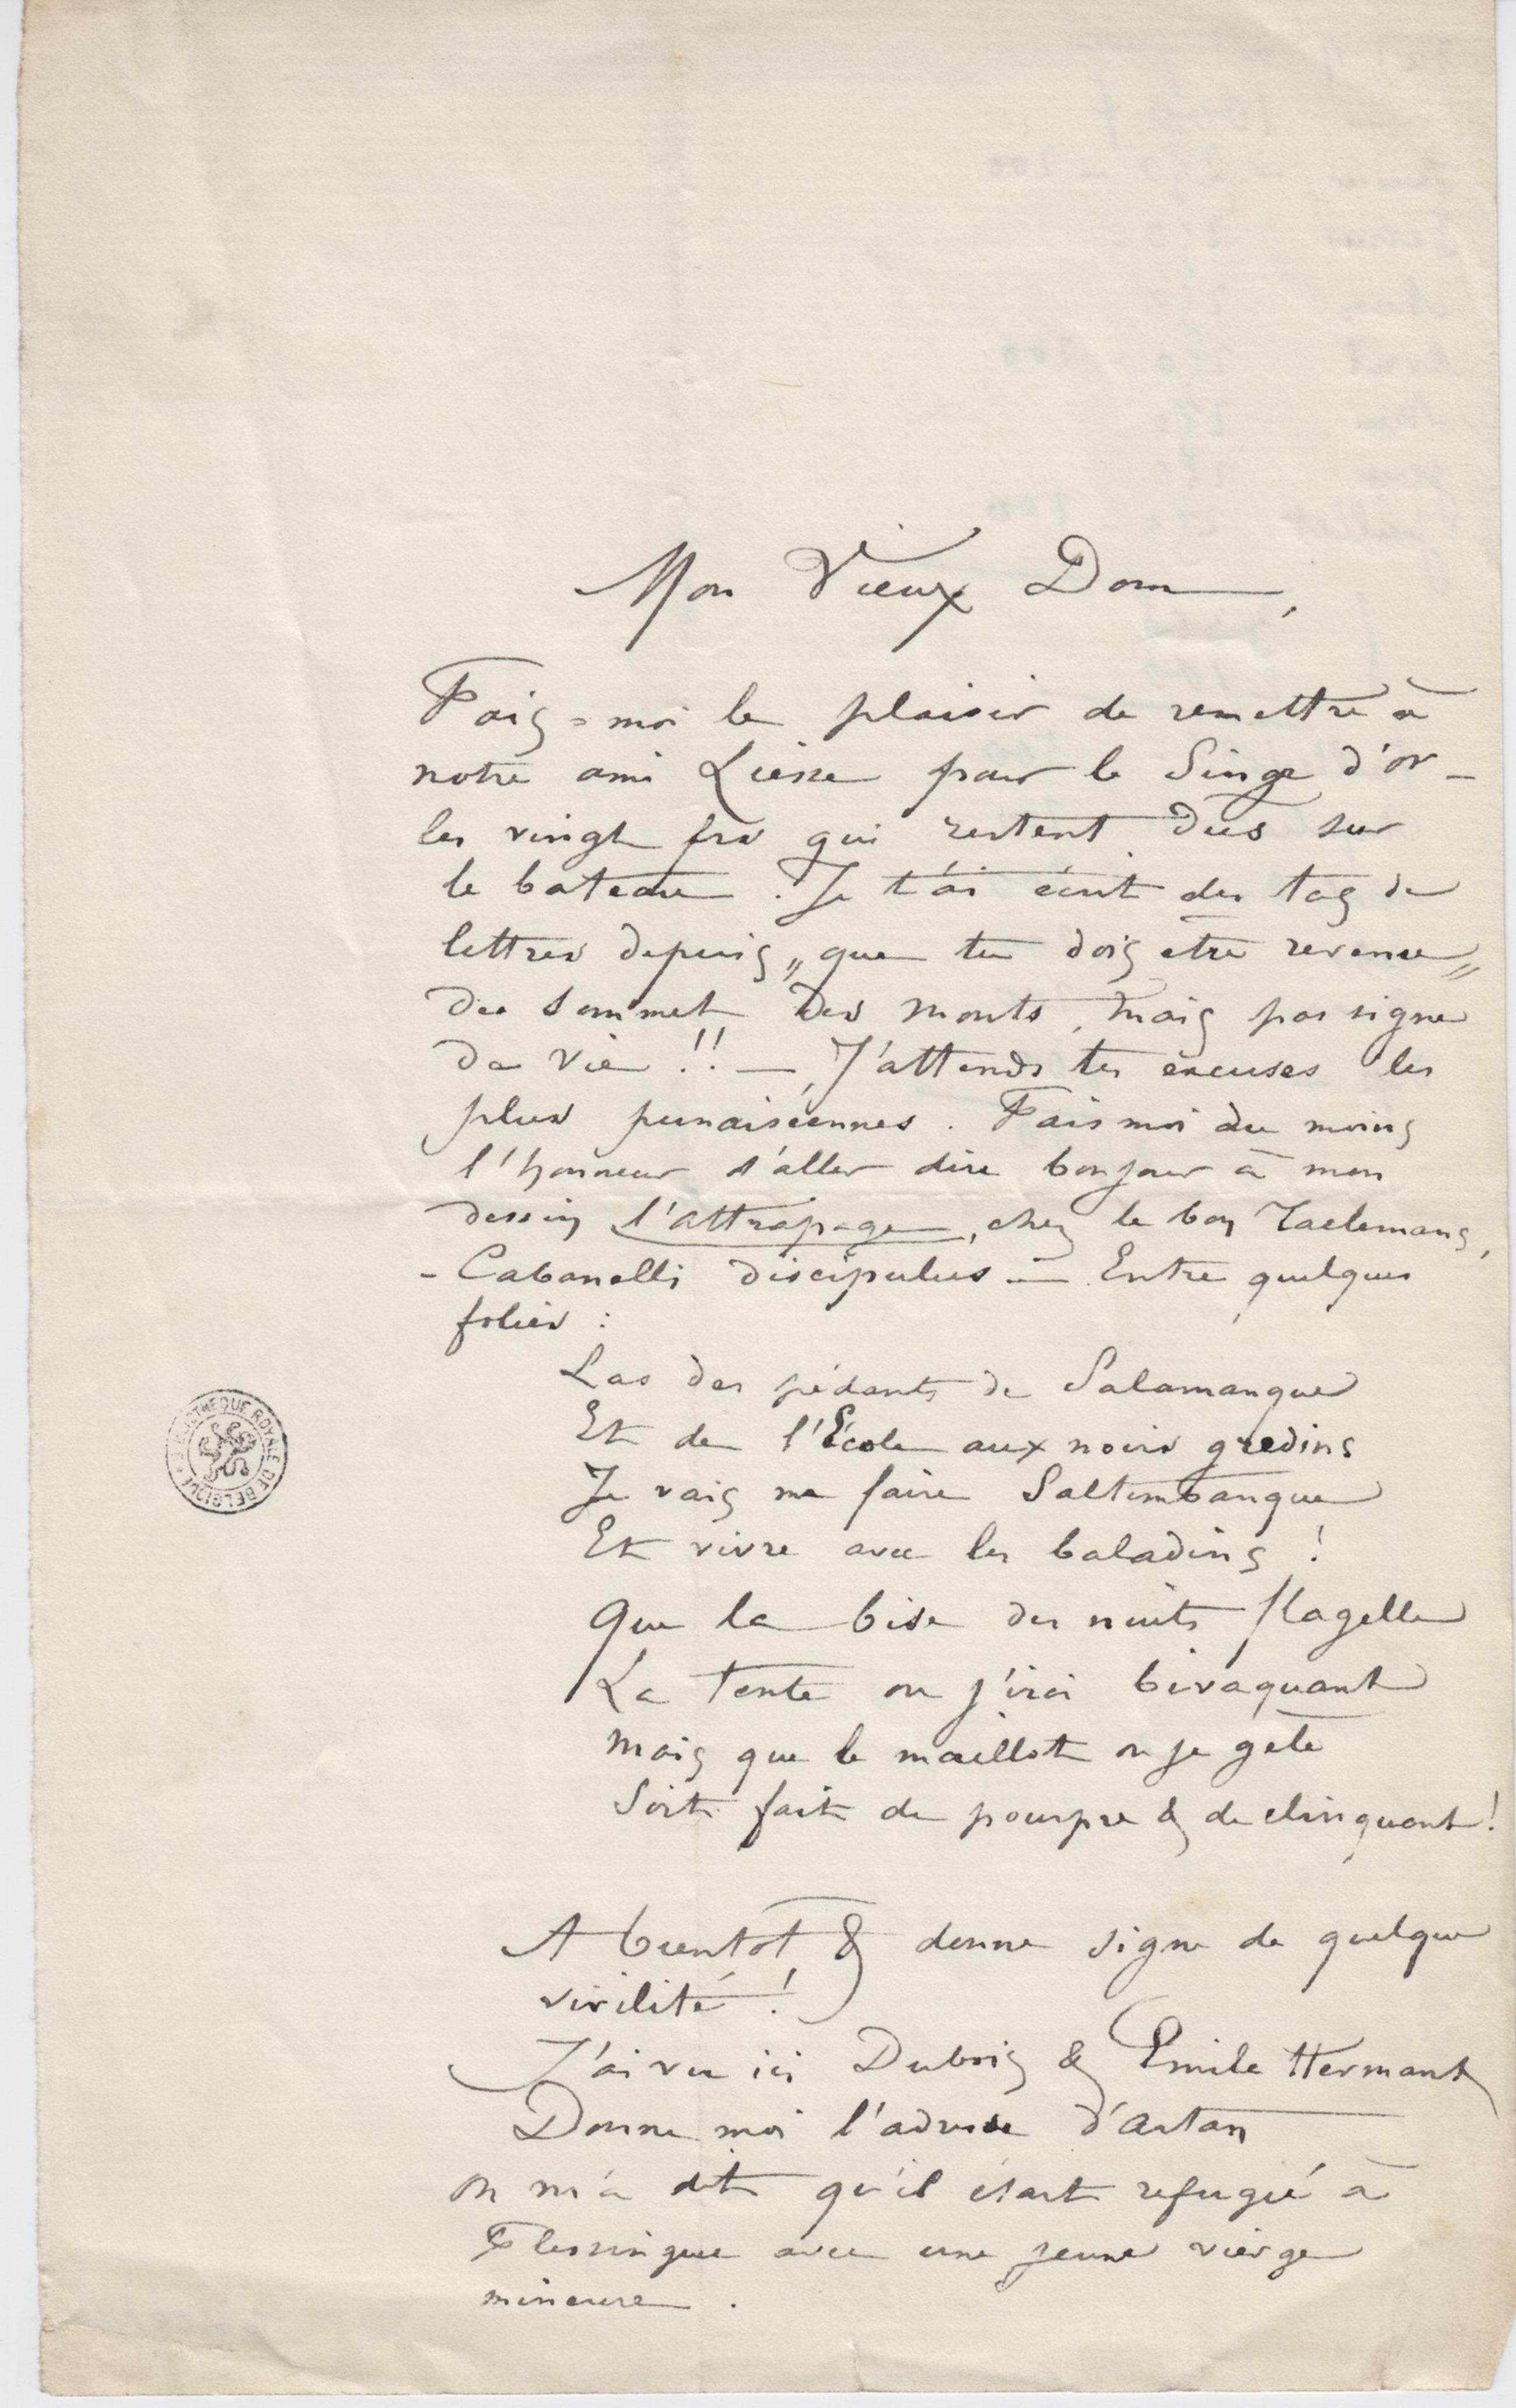 Mon Vieux Dom,
Fais-moi le plaisir de remettre à
notre ami Liesse pour le Singe d'or –
les vingt frs qui restent dûs sur
le bateau. Je t'ai écrit des tas de
lettres depuis „que tu dois etre revenu„
du sommet des monts, mais pas signe
de vie !! – J'attends tes excuses les
plus punaiséennes. Fais moi du moins
l'honneur d'aller dire bonjour à mon
dessin l'attrapage, chez le bon Taelemans,
- Cabanelli discipulus – Entre quelques
folies :
Las des pédants de Salamanque
Et de l'École aux noirs gredins
Je vais me faire Saltimbanque
Et vivre avec les baladins !
Que la bise des nuits flagelle
La tente ou j'irai bivaquant
Mais que le maillot ou je gèle
Soit fait de pourpre & de clinquant !
A bientôt & donne signe de quelque
virilité !
J'ai vu ici Dubois & Emile Hermant
Donne moi l'adresse d'Artan
on m'a dit qu'il était refugié à
Flessingue avec une jeune vierge
mineure .
BIBLIOTHEQUE ROYALE DE BELGIQUE